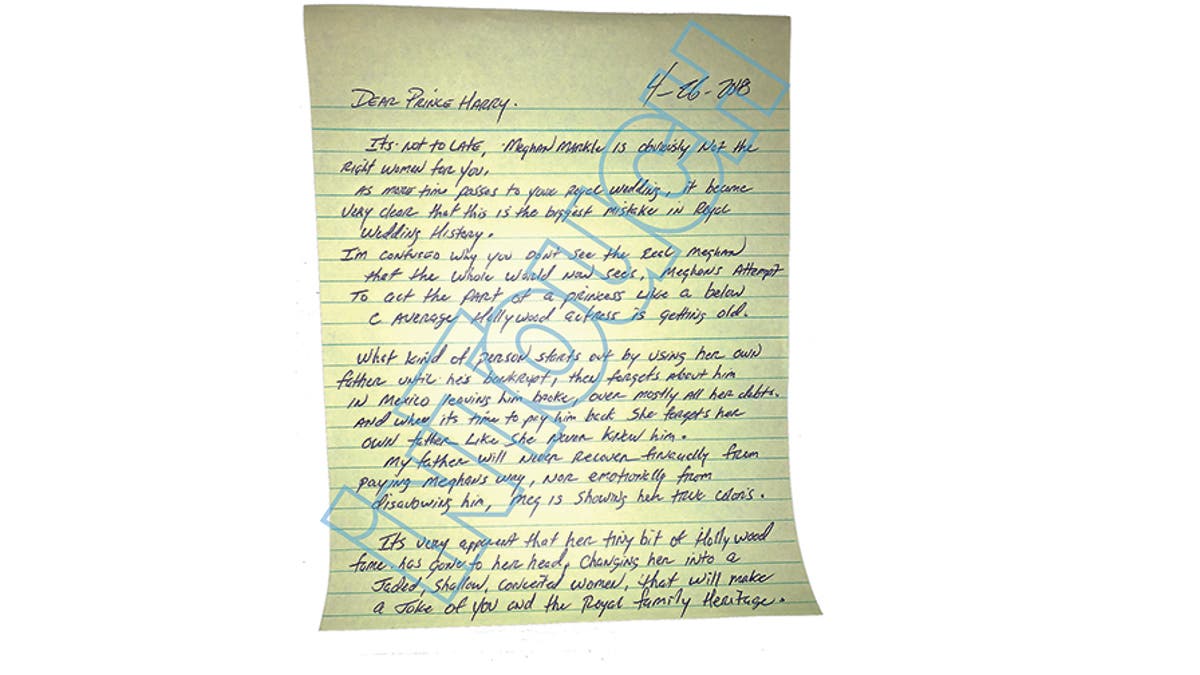 4-26-2018
DEAR PRINCE HARRY.
It's not to LATE, Meghan Markle is obviously Not the
Right women for you.
As more time passes to your Royal wedding, it became
very clear that this is the biggest mistake in Royal
wedding History.
I'm confused why you don't see the real Meghan
that the whole world now sees, Meghans Attempt
To act the part of a princess like a below
C Average Hollywood actress is getting old.
What kind of person starts out by using her own
father until he's bankrupt, then forgets about him
IN Mexico leaving him broke, over mostly all her debts.
And when it's time to pay him back She forgets her
own father like she never knew him.
My father will never recover financially from
paying Meghans way, nor emotionally from
disavowing him, Meg is showing her true color's.
It's very apparent that her tiny bit of Hollywood
fame has gone to her head, Changing her into a
Jaded, Shallow, conceited women, that will make
a Joke of you and the Royal family Heritage.
inTouch